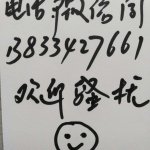 电话微信同
13833427661
欢迎骚扰